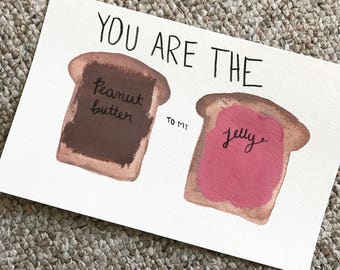 YOU ARE THE
Peanut
butter
TO MY
jelly